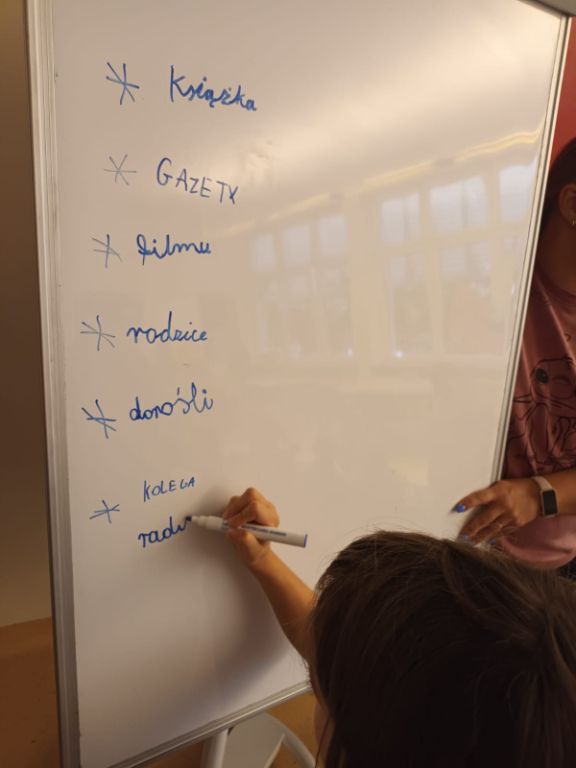 * Książka
* GAZETY
* filmu
* rodzice
* dorośli
* KOLEGA
radi